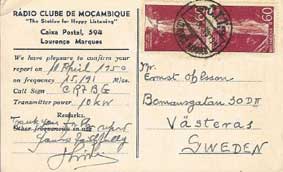 RÁDIO CLUBE DE MOÇAMBIQUE
"The Station for Happy Listening"
Caixa Postal, 594
Lourenço Marques
We have pleasure to confirm your
report on 11 April 1950
on frequency 15,191 M/cs.
Call Sign CR7BG
Transmitter power 10kW
Remarks.
Thank you for report
Other frequencies in use
Yours faithfully
60
60
Mr.
Ernst
Bomansgatan 30 D II
Västerås
SWEDEN